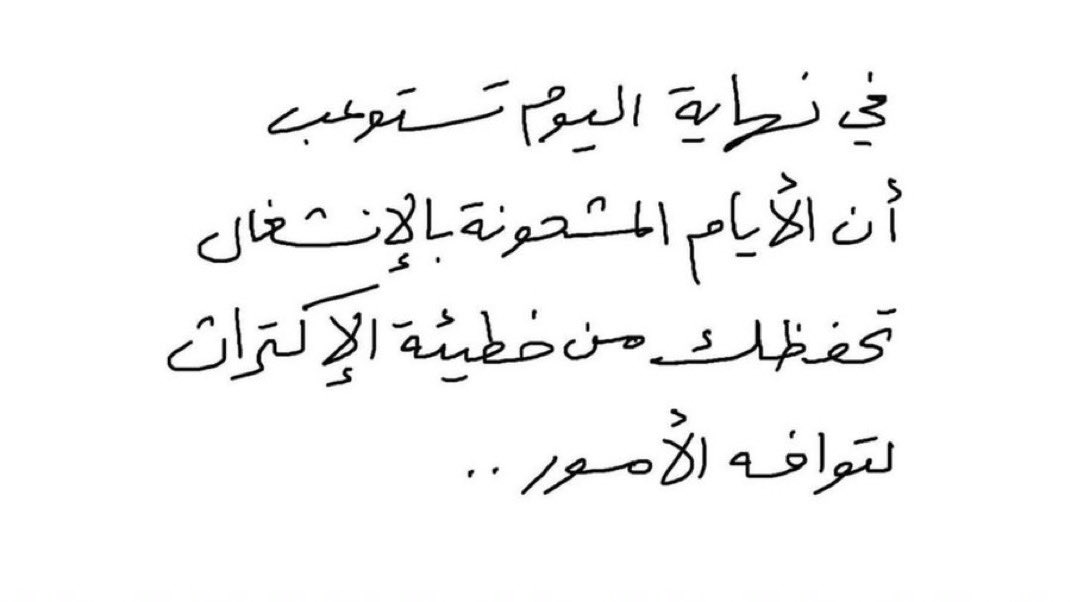 في نهاية اليوم تستوعب
أن الأيام المشحونة بالإنشغال
تحفظك من خطيئة الإكتراث
لتوافه الأمور ..